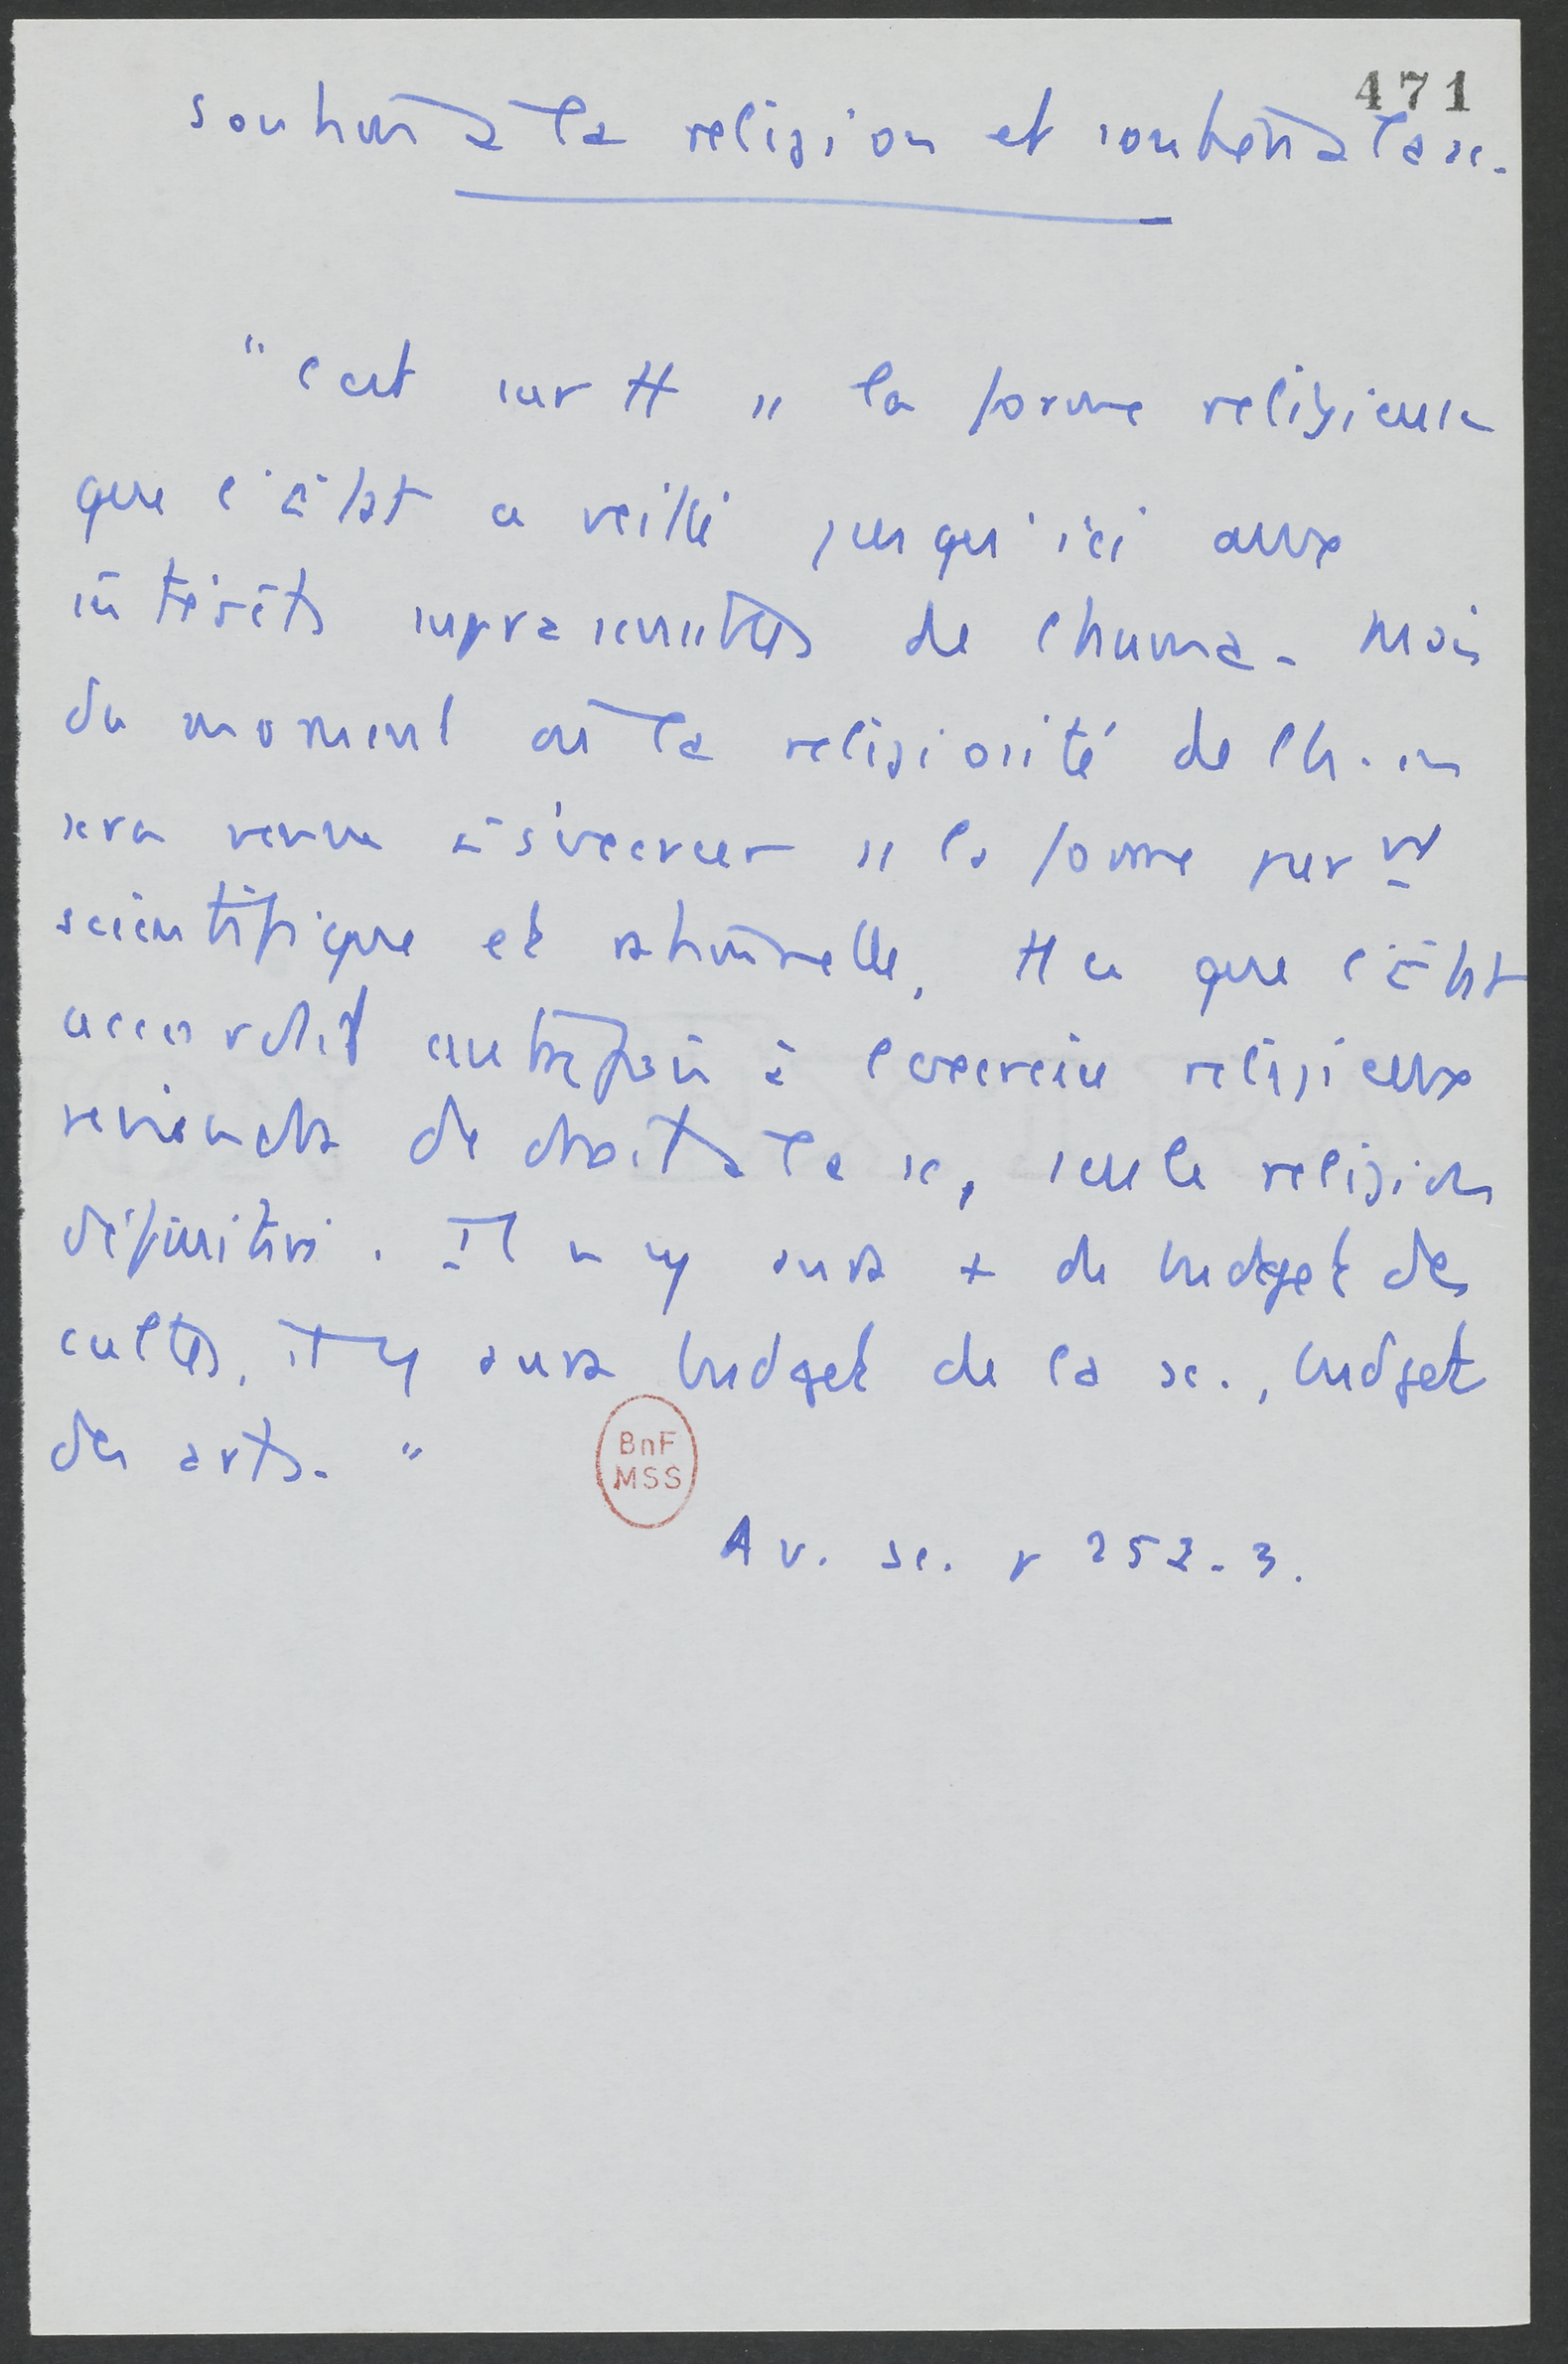 471
soutien à la religion et soutien à la sc.
" c'est sur tt ss la forme religieuse
que l'état a veillé jusqu'ici aux
intérêts suprasensibles de l'huma. Mais
du moment où la religiosité de l'h.
sera venue à s'exercer ss la forme pur
scientifique et rationnelle, tt ce que l'état
accordait autrefois à l'exercice religieux
reviendra de droit à la sc, seule religion
définitive. Il n'y aura + de budget des
cultes, il y aura budget de la sc., budget
des arts. "
BnF
MSS
Av. sc. p 252-3.